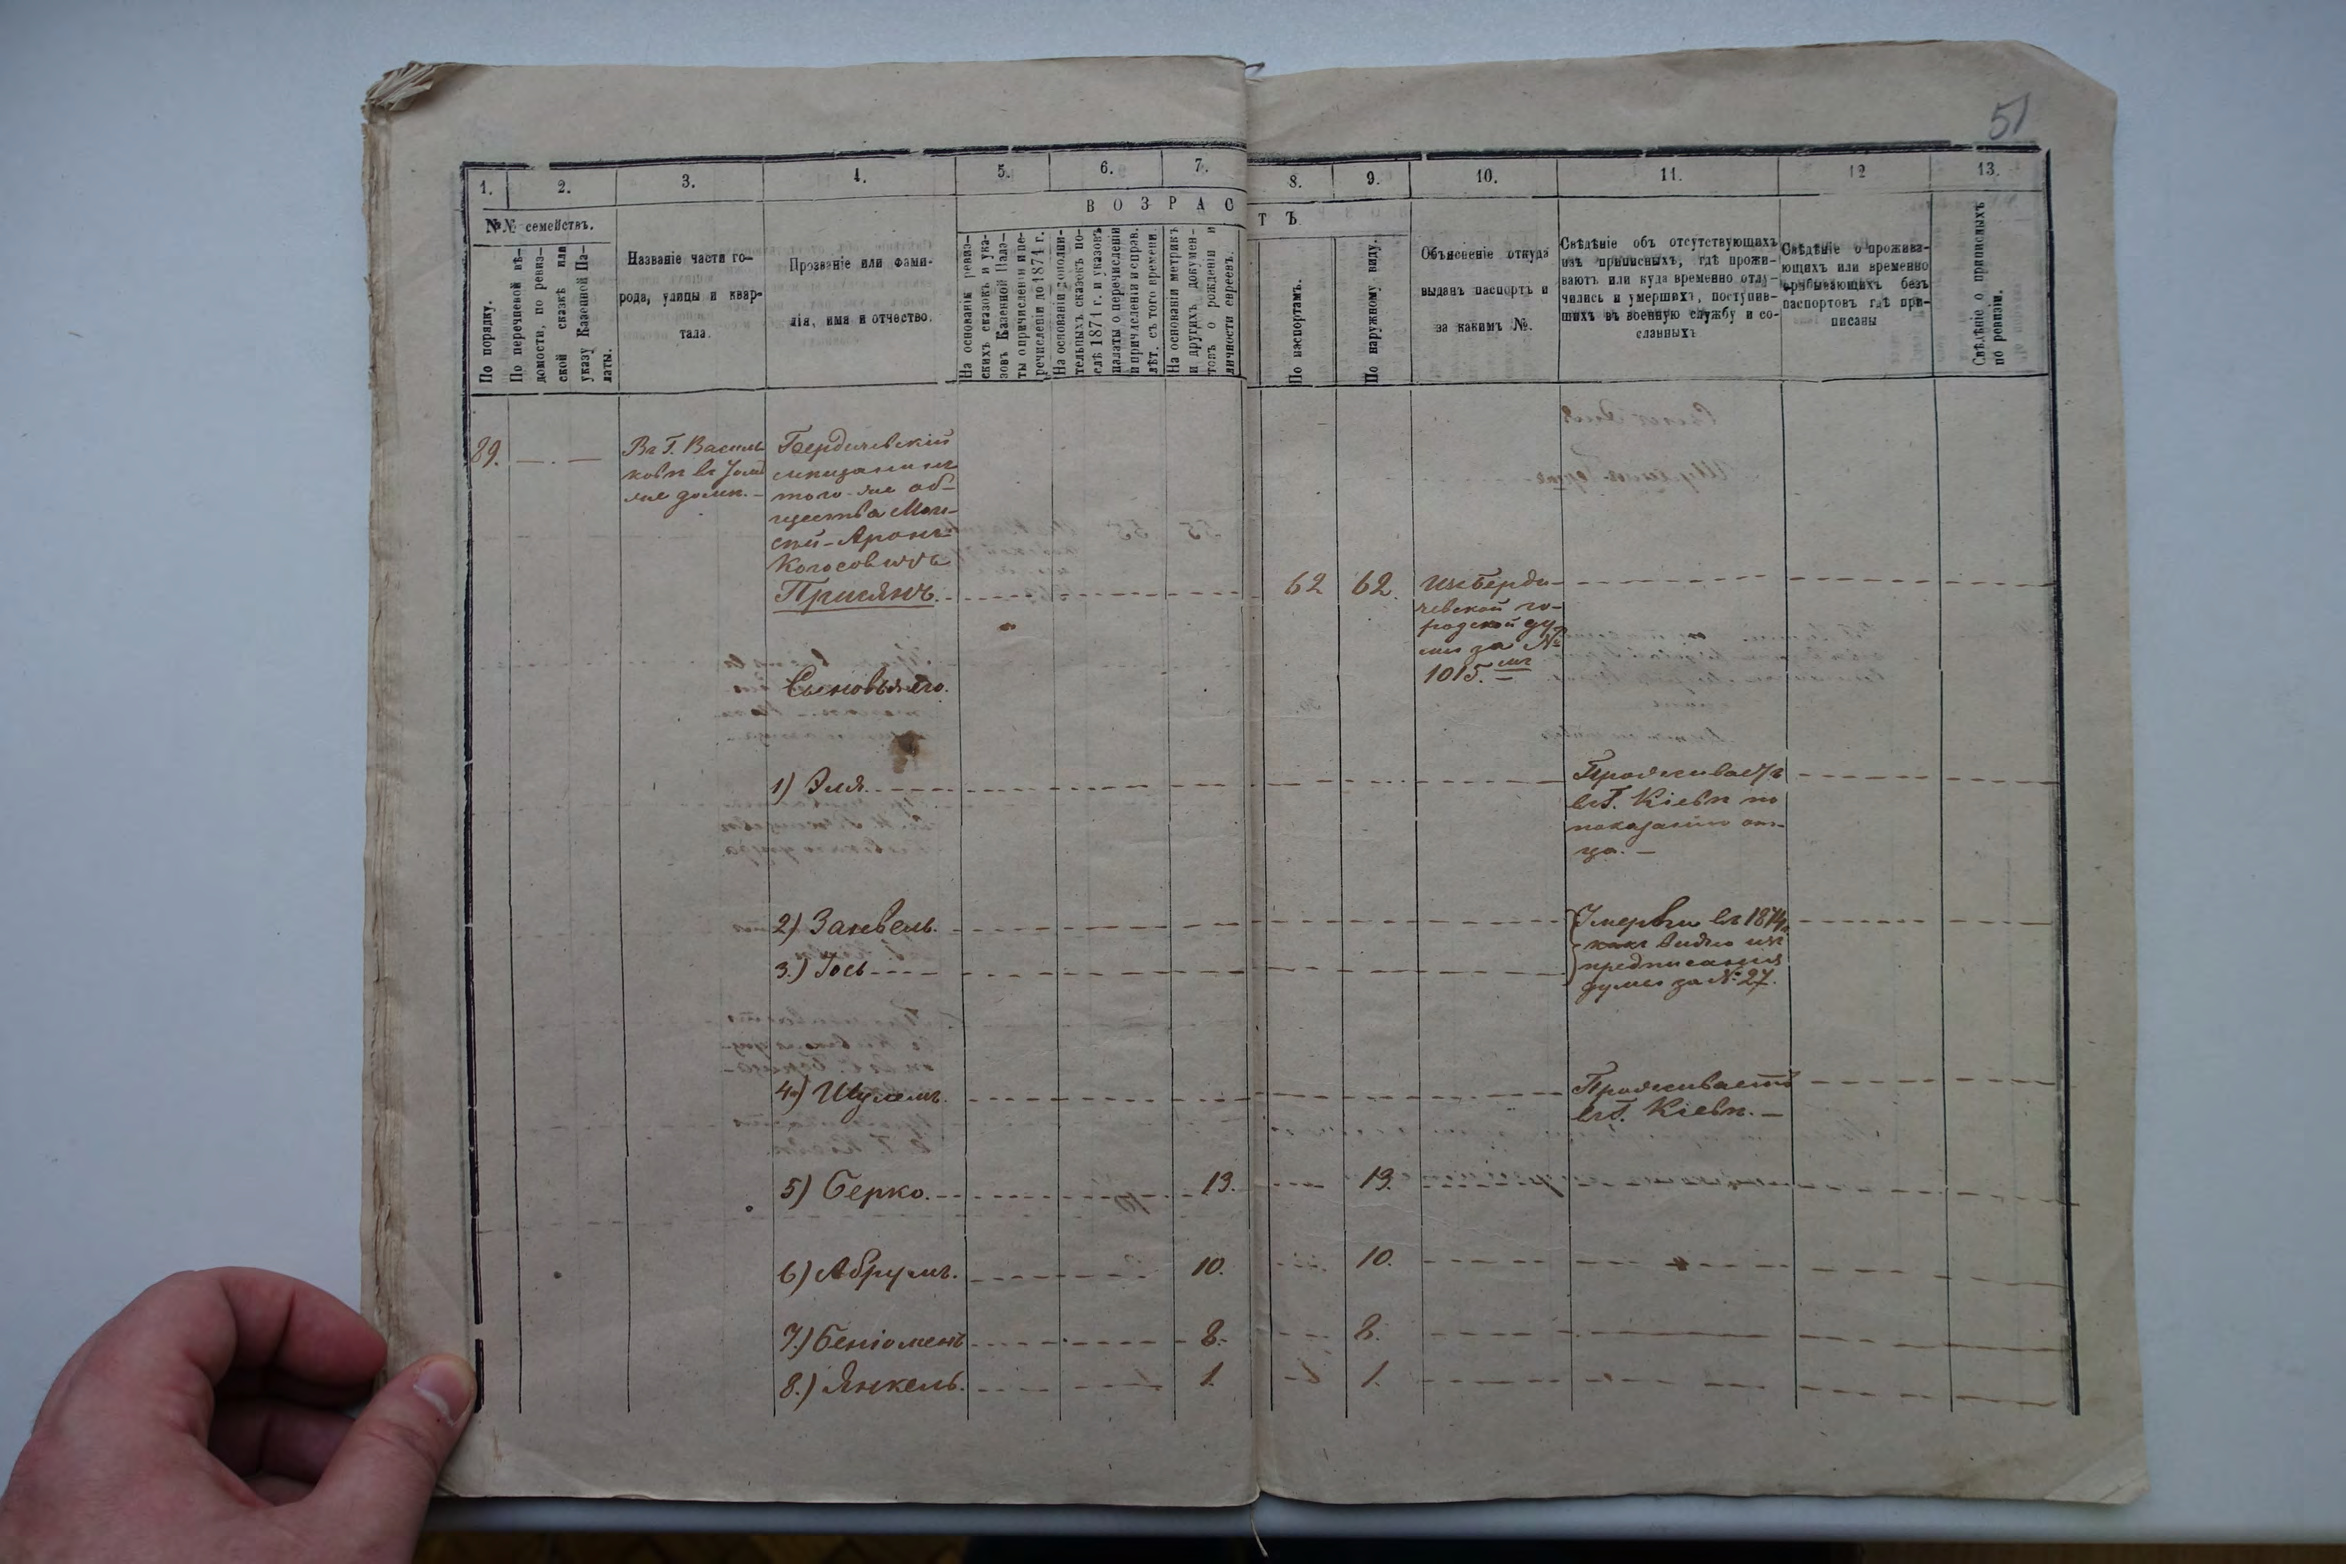 51
1. 2. 3. 4. 5. 6. 7. 8. 9. 10. 11. 12 13.
№№ семействъ.
В О З Р А С Т Ъ
По порядку.
По перечневой вѣ-
домости, по ревиз-
ской сказкѣ или
указу Казенной Па-
латы.
Названіе части го-
рода, улицы и квар-
тала.
Прозваніе или фами-
лія, имя и отчество.
На основаніи ревиз-
скихъ сказокъ и ука-
зовъ Казенной Пала-
ты о причисленіи и пе-
речисленіи до 1874 г.
На основаніи дополни-
тельныхъ сказокъ по-
слѣ 1874 г. и указовъ
палаты о перечисленіи
и причисленіи и справ.
лѣт. съ того времени.
На основаніи метрикъ
и другихъ докумен-
товъ о рожденіи и
личности евреевъ.
По паспортамъ.
По наружному виду.
Объясненіе откуда
выданъ паспортъ и
за какимъ №.
Свѣдѣніе объ отсутствующихъ
изъ приписныхъ, гдѣ прожи-
ваютъ или куда временно отлу-
чились и умершихъ, поступив-
шихъ въ военную службу и со-
сланныхъ
Свѣдѣніе о прожива-
ющихъ или временно
пребывающихъ безъ
паспортовъ гдѣ при-
писаны
Свѣдѣніе о приписныхъ
по ревизіи.
89. — . —
Въ Г. Василь
ковѣ въ
же домѣ. —
Бердичевскій
мѣщанинъ
того-же об-
щества Мош-
Аронъ
Пришянъ. 62 62.
Изъ Берди-
чевской го-
родской ду-
мы за №
1015. мъ
Сыновья его.
1) Эля
Проживаетъ
въ Г. Кіевѣ по
показанію от-
ца. —
2) Занвель.
3.) Гось
Умерши въ 1874г.
какъ видно изъ
предписанія
думы за № 27.
4) Шулемъ.
Проживаетъ
въ Г. Кіевѣ. —
5) Берко. 13. 13.
6) Абрумъ. 10. 10.
7.) Беніоменъ 8. 8.
8.) Янкель. 1. 1.